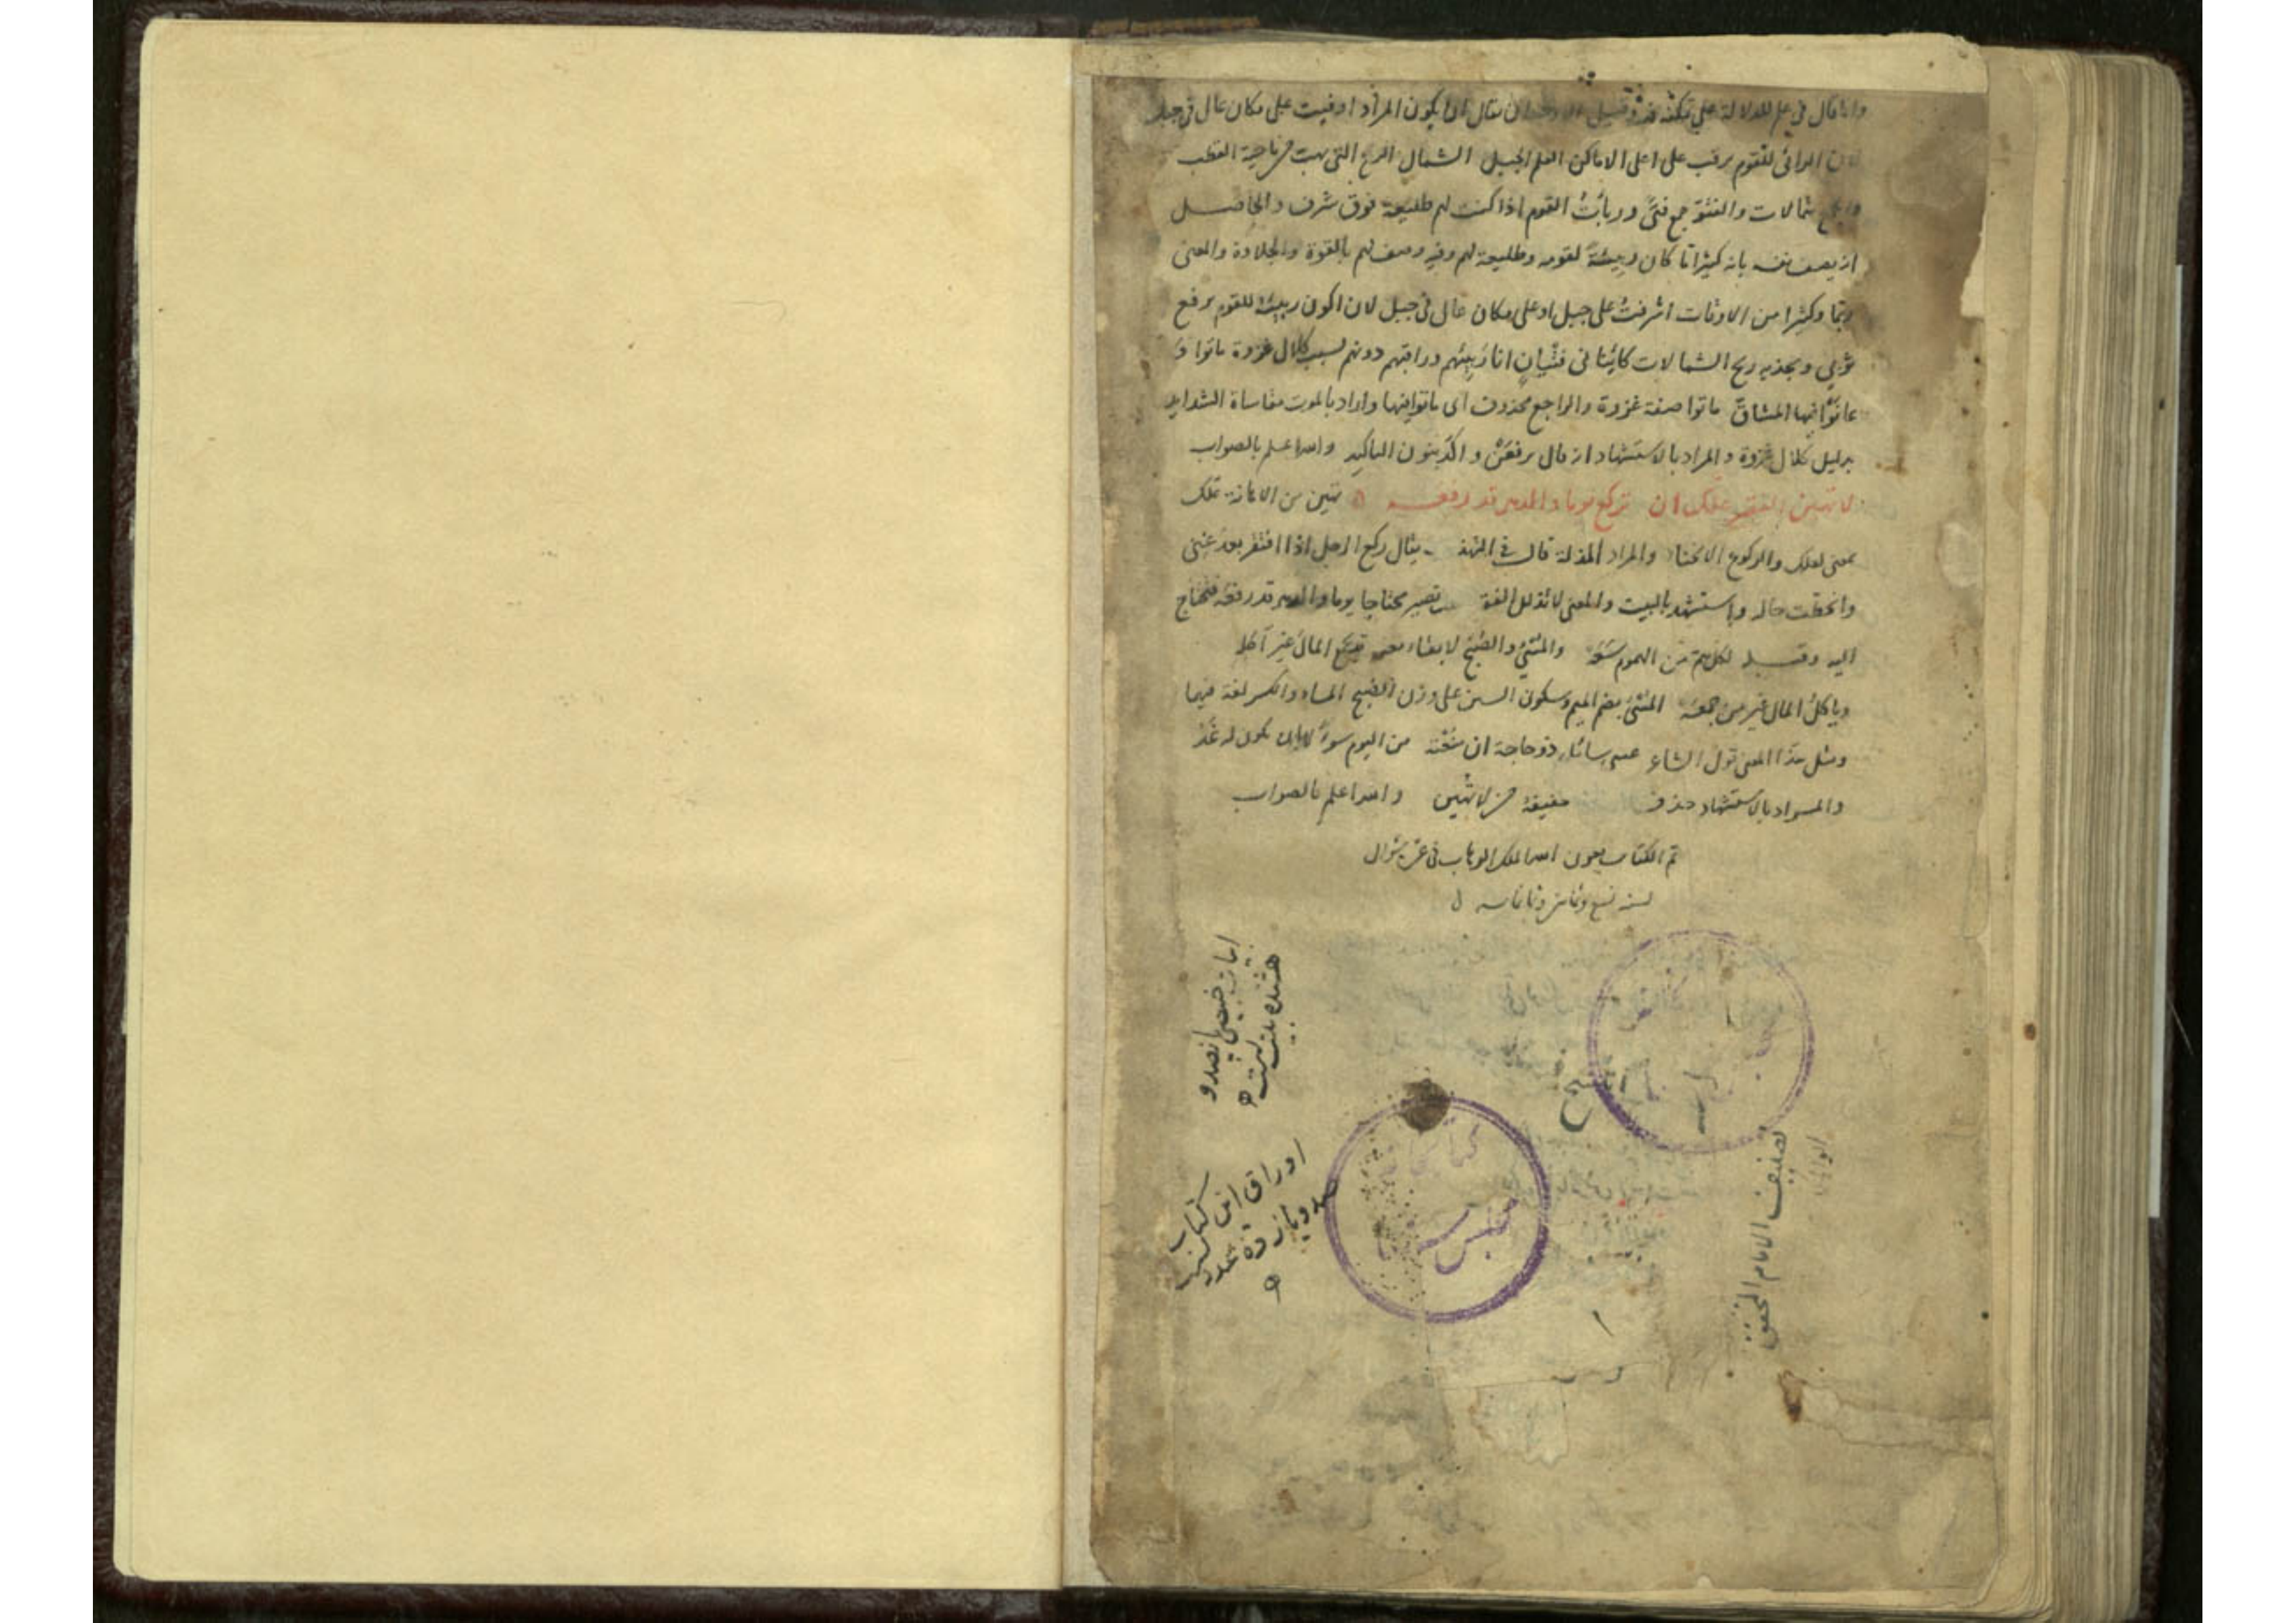 وانما قال في علم للدلالة على تمكنه فيه وقيل ان يقال ان يكون المراد اوفيت على مكان عال في جبل
لان الرائي للقوم يرقب على اعلى الاماكن العلم الجبل الشمال الريح التي تهب من ناحية القطب
والجمع شمالات والفتو جمع فتى وربأت القوم اذا كنت لهم طليعة فوق شرف والحاصل
انه يصف نفسه بانه كثيرا ما كان ربيئة لقومه وطليعة لهم وفيه وصف لهم بالقوة والجلادة والمعنى
ربما وكثيرا من الاوقات اشرفت على جبل او على مكان عال في جبل لان اكون ربيئة للقوم يرفع
ثوبي ويجذبه ريح الشمالات كائنا في فتيان انا ربيئهم وراقبهم دونهم لسبب كلال غزوة ماتوا و
عانوا فيها المشاق ماتوا صفة غزوة والراجع محذوف اى ماتوا فيها واراد بالموت مقاساة الشدايد
بدليل كلال غزوة والمراد بالاستشهاد انه قال يرفعن واكد بنون التاكيد والله اعلم بالصواب
لا تهين الفقير علك ان تركع يوما والدهر قد رفعه تهين من الاهانة علك
بمعنى لعلك والركوع الانحناء والمراد المذلة قال في يقال ركع الرجل اذا افتقر بعد غنى
وانحطت حاله واستشهد بالبيت والمعنى لا تذلل تصير محتاجا يوما والدهر قد رفعه فتحتاج
اليه وقبله لكل هم من الهموم سعه والمسى والصبح لا بقاء معه قد يجمع المال غير آكله
وياكل المال غير من جمعه المسى بضم الميم وسكون السين على وزن الصبح المساء والكسر لغة فيهما
ومثل هذا المعنى قول الشاعر عسى سائل ذو حاجة ان منعته من اليوم سولا ان يكون له غد
والمراد بالاستشهاد حذف خفيفة من لا تهين والله اعلم بالصواب
تم الكتاب بعون الله الملك الوهاب في شوال
لسنة تسع وثمانين وثمانمايه
ابيات خبيصي پانصد و
هشتده بيت است
اوراق اين كتاب
صد و يازده عدد
تصنيف الامام المحقق
مجلس